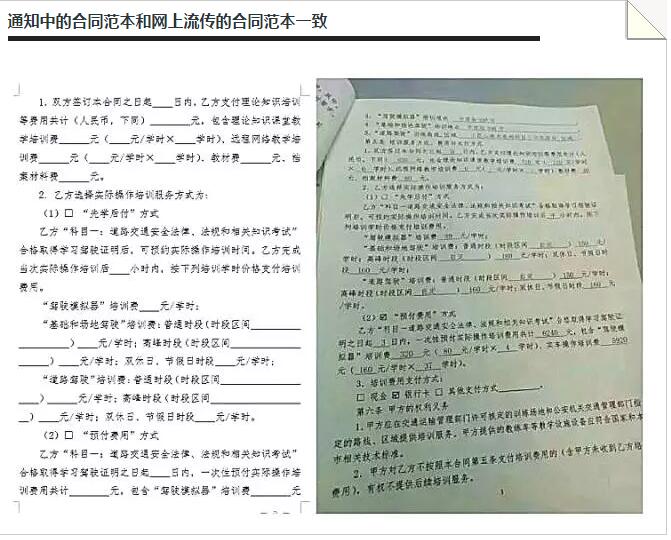 通知中的合同范本和网上流传的合同范本一致
1. 双方签订本合同之日起____日内，乙方支付理论知识培训
等费用共计（人民币，下同）____元，包含理论知识课堂教
学培训费____元（____元/学时×____学时）、远程网络教学培
训费____元（____元/学时×____学时）、教材费____元、档
案材料费____元。
2. 乙方选择实际操作培训服务方式为：
（1）□ “先学后付”方式
乙方“科目一：道路交通安全法律、法规和相关知识考试”
合格取得学习驾驶证明后，可预约实际操作培训时间，乙方完成
当次实际操作培训后____小时内，按下列培训学时价格支付培训
费用。
“驾驶模拟器”培训费____元/学时；
“基础和场地驾驶”培训费：普通时段（时段区间____
____）____元/学时；高峰时段（时段区间____
____）____元/学时；双休日、节假日时段____元/学时；
“道路驾驶”培训费：普通时段（时段区间____
____）____元/学时；高峰时段（时段区间____
____）____元/学时；双休日、节假日时段____元/学时。
（2）□ “预付费用”方式
乙方“科目一：道路交通安全法律、法规和相关知识考试”
合格取得学习驾驶证明之日起____日内，一次性预付实际操作培
训费用共计____元，包含“驾驶模拟器”培训费____元
2. 乙方选择实际操作培训服务方式为：
（1）□ “先学后付”方式
乙方“科目一道路交通安全法律、法规和相关知识考试”合格取得学习驾驶证
明后，可预约实际操作培训时间，乙方完成当次实际操作培训后 4 小时内，按下
列培训学时价格支付培训费用。
“驾驶模拟器”培训费 80 元/学时；
“基础和场地驾驶”培训费：普通时段（时段区间 ） 150 元/
学时；高峰时段（时段区间 ） 160 元/学时；双休日、节假日时
段 160 元/学时；
“道路驾驶”培训费：普通时段（时段区间 ） 150 元/学时；
高峰时段（时段区间 ） 160 元/学时；双休日、节假日时段 160 元
/学时。
（2）☑ “预付费用”方式
乙方“科目一道路交通安全法律、法规和相关知识考试”合格取得学习驾驶证
明之日起 3 日内，一次性预付实际操作培训费用共计 6240 元，包含“驾驶模
拟器”培训费 320 元（ 80 元/学时× 4 学时）、实车操作培训费 5920
元（ 160 元/学时× 37 学时）。
3. 培训费用支付方式：
□ 现金 ☑ 银行卡 □ 其他支付方式____。
第六条 甲方的权利义务
1. 甲方应在交通运输管理部门许可核定的训练场地和公安机关交通管理部门核
定的路线、区域提供培训服务。甲方提供的教练车等教学设施设备应符合国家和本
市相关技术标准。
2. 甲方对乙方不按照本合同第五条支付培训费用的（含甲方未收到乙方培
费用），有权不提供后续培训服务。